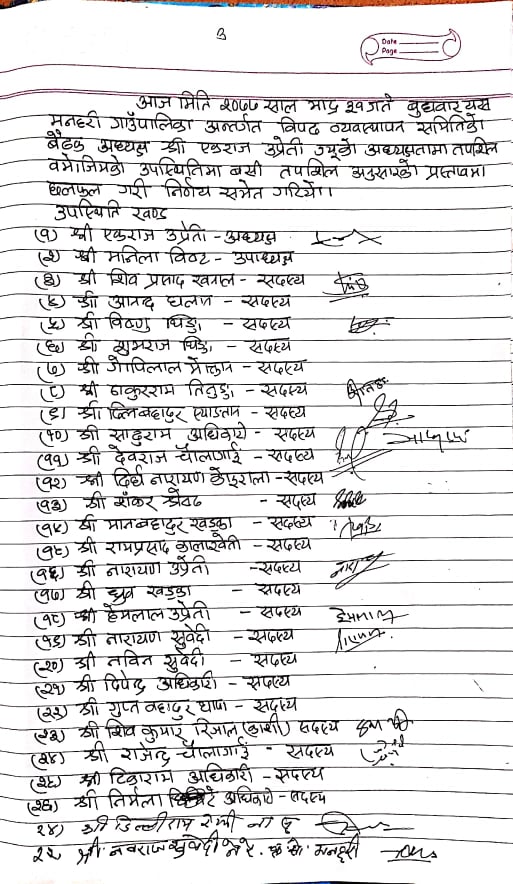 ३
Date
Page
आज मिति २०७७ साल भाद्र ३१ गते बुधवार यस
मनहरी गाउँपालिका अन्तर्गत विपद व्यवस्थापन समितिको
बैठक अध्यक्ष श्री एकराज उप्रेती ज्यूको अध्यक्षतामा तपशिल
बमोजिमको उपस्थितिमा बसी तपशिल अनुसारको प्रस्तावमा
छलफल गरी निर्णय समेत गरियो।
उपस्थिति खण्ड
(१) श्री एकराज उप्रेती - अध्यक्ष
(२) श्री मनिला विष्ट - उपाध्यक्ष
(३) श्री शिव प्रसाद खनाल - सदस्य
(४) श्री आनन्द घलान - सदस्य
(५) श्री विष्णु घिङ - सदस्य
(६) श्री शुभराज घिङ - सदस्य
(७) श्री गोपिलाल मोक्तान - सदस्य
(८) श्री ठाकुरराम तितुङ - सदस्य
(९) श्री दिलबहादुर स्याङतान - सदस्य
(१०) श्री साधुराम अधिकारी - सदस्य
(११) श्री देवराज चौलागाई - सदस्य
(१२) श्री दिर्घ नारायण कोइराला - सदस्य
(१३) श्री शंकर श्रेष्ठ - सदस्य
(१४) श्री मानबहादुर खड्का - सदस्य
(१५) श्री रामप्रसाद कालाखेती - सदस्य
(१६) श्री नारायण उप्रेती - सदस्य
(१७) श्री ध्रुव खड्का - सदस्य
(१८) श्री हेमलाल उप्रेती - सदस्य हेमलाल
(१९) श्री नारायण सुवेदी - सदस्य
(२०) श्री नविन सुवेदी - सदस्य
(२१) श्री दिपेन्द्र अधिकारी - सदस्य
(२२) श्री गुप्त बहादुर थापा - सदस्य
(२३) श्री शिव कुमार रिजाल (काशी) सदस्य
(२४) श्री राजेन्द्र चौलागाई - सदस्य
(२५) श्री टिकाराम अधिकारी - सदस्य
(२६) श्री निर्मला अधिकारी - सदस्य
२७) श्री डिल्लीराम
२८ श्री नवराज सुवेदी मनहरी